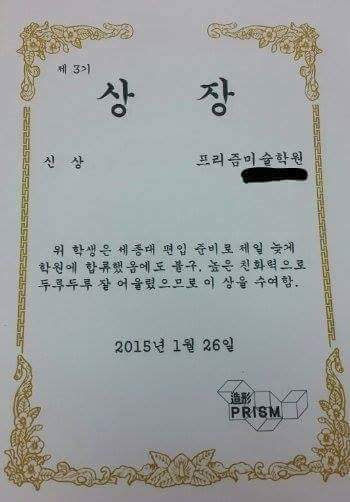 제 3기
상 장
신 상 프리즘미술학원
위 학생은 세종대 편입 준비로 제일 늦게
학원에 합류했음에도 불구, 높은 친화력으로
두루두루 잘 어울렸으므로 이 상을 수여함.
2015년 1월 26일
造形
PRISM